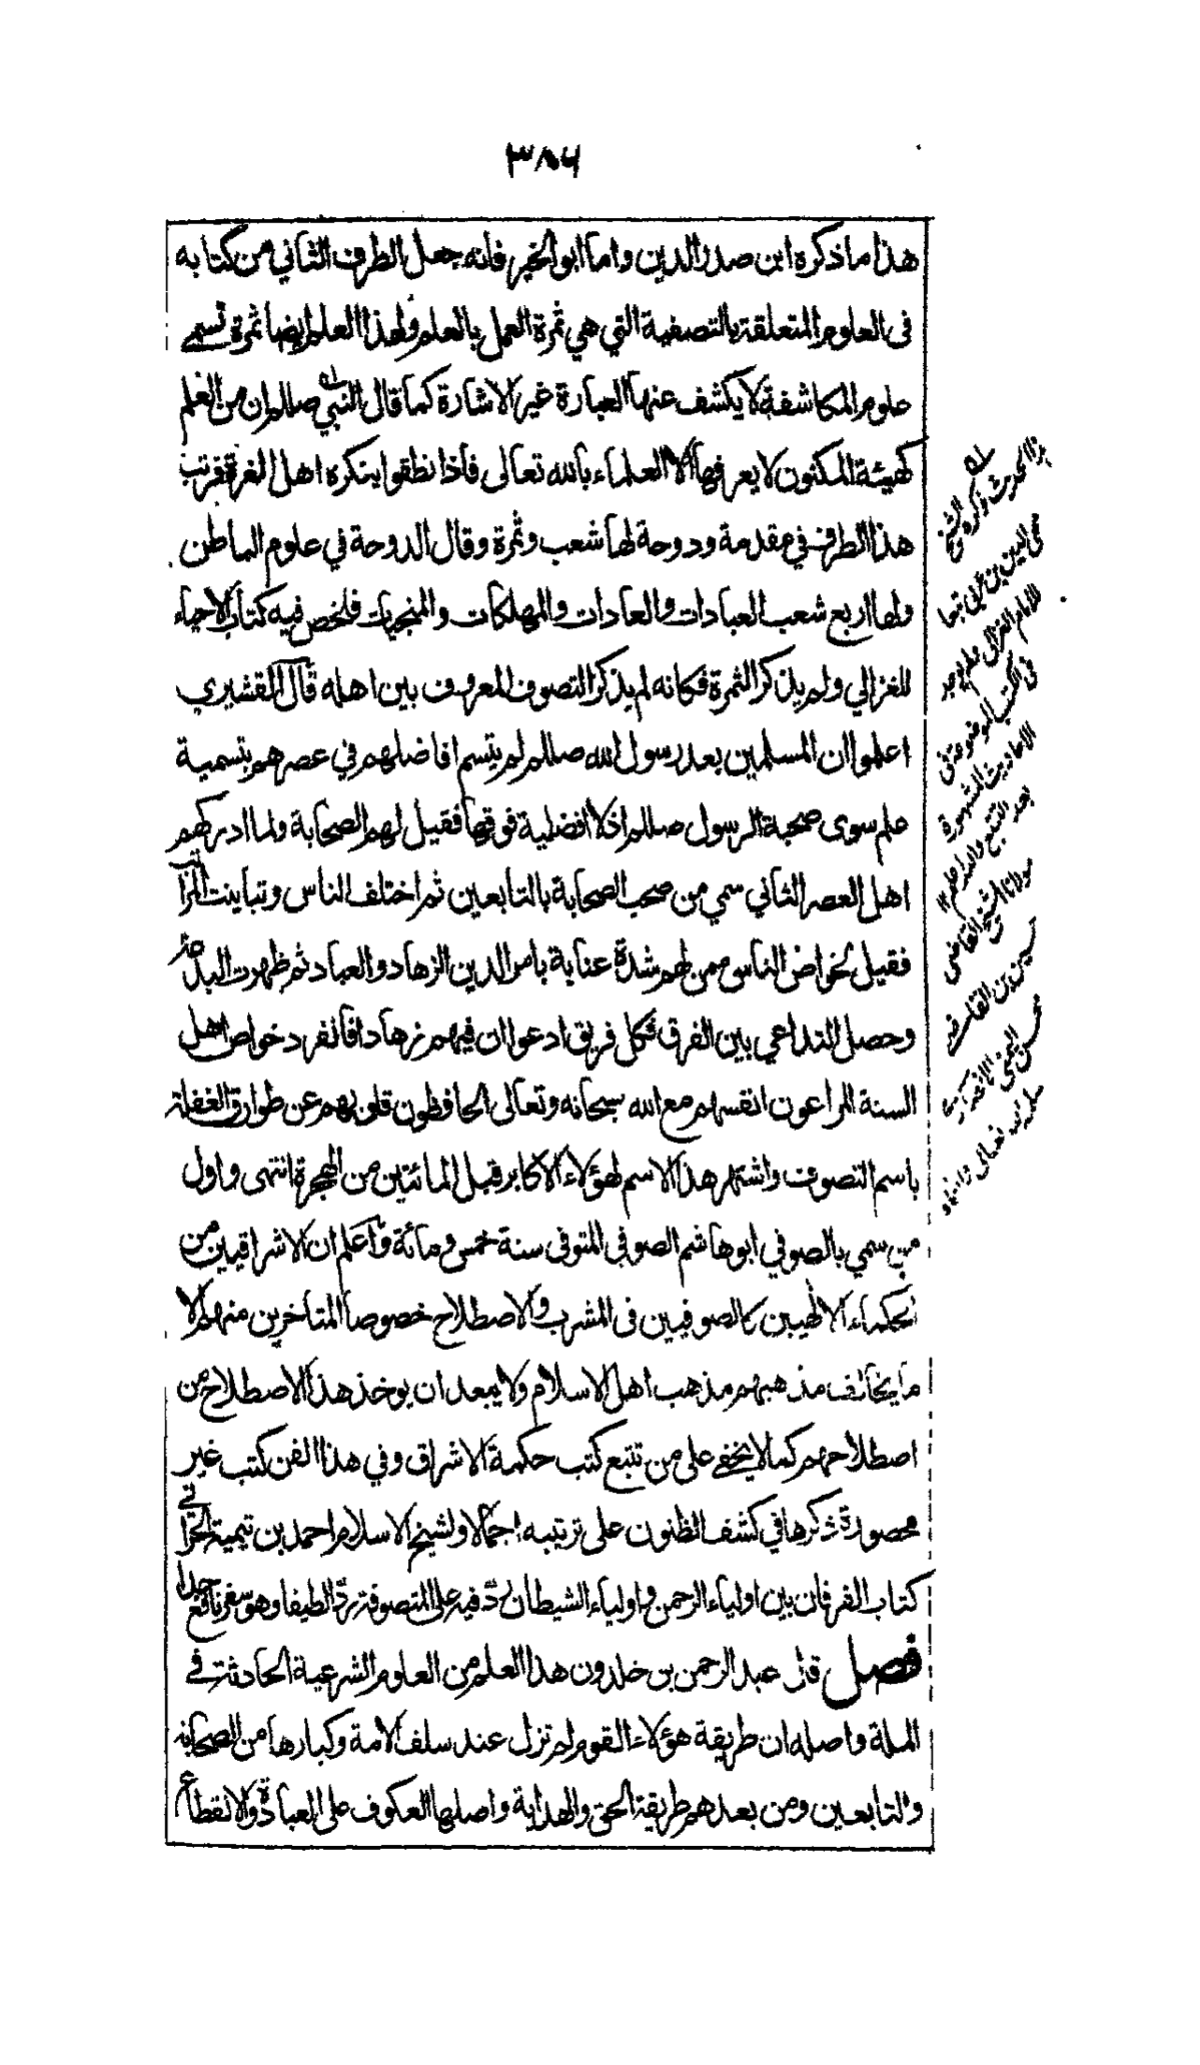 ٣٨٦
هذا ما ذكره ابن صدر الدين واما ابو الخير فانه جعل الطرف الثاني من كتابه
فى العلوم المتعلقة بالتصفية التي هي ثمرة العمل بالعلم ولهذا العلم ايضا ثمرة تسمى
علوم المكاشفة لا يكشف عنها العبارة غير الاشارة كما قال النبي صللم ان من العلم
كهيئة المكنون لا يعرفها الا العلماء بالله تعالى فاذا نطقوا ينكره اهل الغرة فرتب
هذا الطرف في مقدمة ودوحة لها شعب وثمرة وقال الدوحة في علوم الباطن
ولها اربع شعب العبادات والعادات والمهلكات والمنجيات فلخص فيه كتاب الاحياء
للغزالي ولم يذكر الثمرة فكانه لم يذكر التصوف المعروف بين اهله قال القشيري
اعلموا ان المسلمين بعد رسول الله صللم لم يتسم افاضلهم في عصرهم بتسمية
علم سوى صحبة الرسول صللم اذ لا افضلية فوقها فقيل لهم الصحابة ولما ادركهم
اهل العصر الثاني سمي من صحب الصحابة بالتابعين ثم اختلف الناس وتباينت المراتب
فقيل لخواص الناس ممن لهم شدة عناية بامر الدين الزهاد والعباد ثم ظهرت البدعة
وحصل التداعي بين الفرق فكل فريق ادعوا ان فيهم زهادا فانفرد خواص اهل
السنة المراعون انفسهم مع الله سبحانه وتعالى الحافظون قلوبهم عن طوارق الغفلة
باسم التصوف واشتهر هذا الاسم لهؤلاء الاكابر قبل المائتين من الهجرة انتهى واول
من سمي بالصوفي ابو هاشم الصوفى المتوفى سنة خمس ومائة واعلم ان الاشراقيين من
الحكماء الالهيين كالصوفيين فى المشرب والاصطلاح خصوصا المتاخرين منهم الا
ما يخالف مذهبهم مذهب اهل الاسلام ولا يبعد ان يوخذ هذا الاصطلاح من
اصطلاحهم كما لا يخفى على من تتبع كتب حكمة الاشراق وفي هذا الفن كتب غير
محصورة ذكرها في كشف الظنون على ترتيبه اجمالا ولشيخ الاسلام احمد بن تيمية الحراني
كتاب الفرقان بين اولياء الرحمن واولياء الشيطان ردّ فيه على المتصوفة ردّا لطيفا وهو سفر نافع جدا
فصل قال عبد الرحمن بن خلدون هذا العلم من العلوم الشرعية الحادثة في
الملة واصله ان طريقة هؤلاء القوم لم تزل عند سلف الامة وكبارها من الصحابة
والتابعين ومن بعدهم طريقة الحق والهداية واصلها العكوف على العبادة والانقطاع
هذا الحديث ذكره الشيخ
محي الدين بن عربي تبعا
للامام الغزالي ولم يوجد
فى الكتب الموضوعة فى
الاحاديث المشهورة
بعد التتبع والله اعلم
مولانا الشيخ القاضى
حسين بن القاضي
محسن اليمنى الانصاري
سلمه الله تعالى